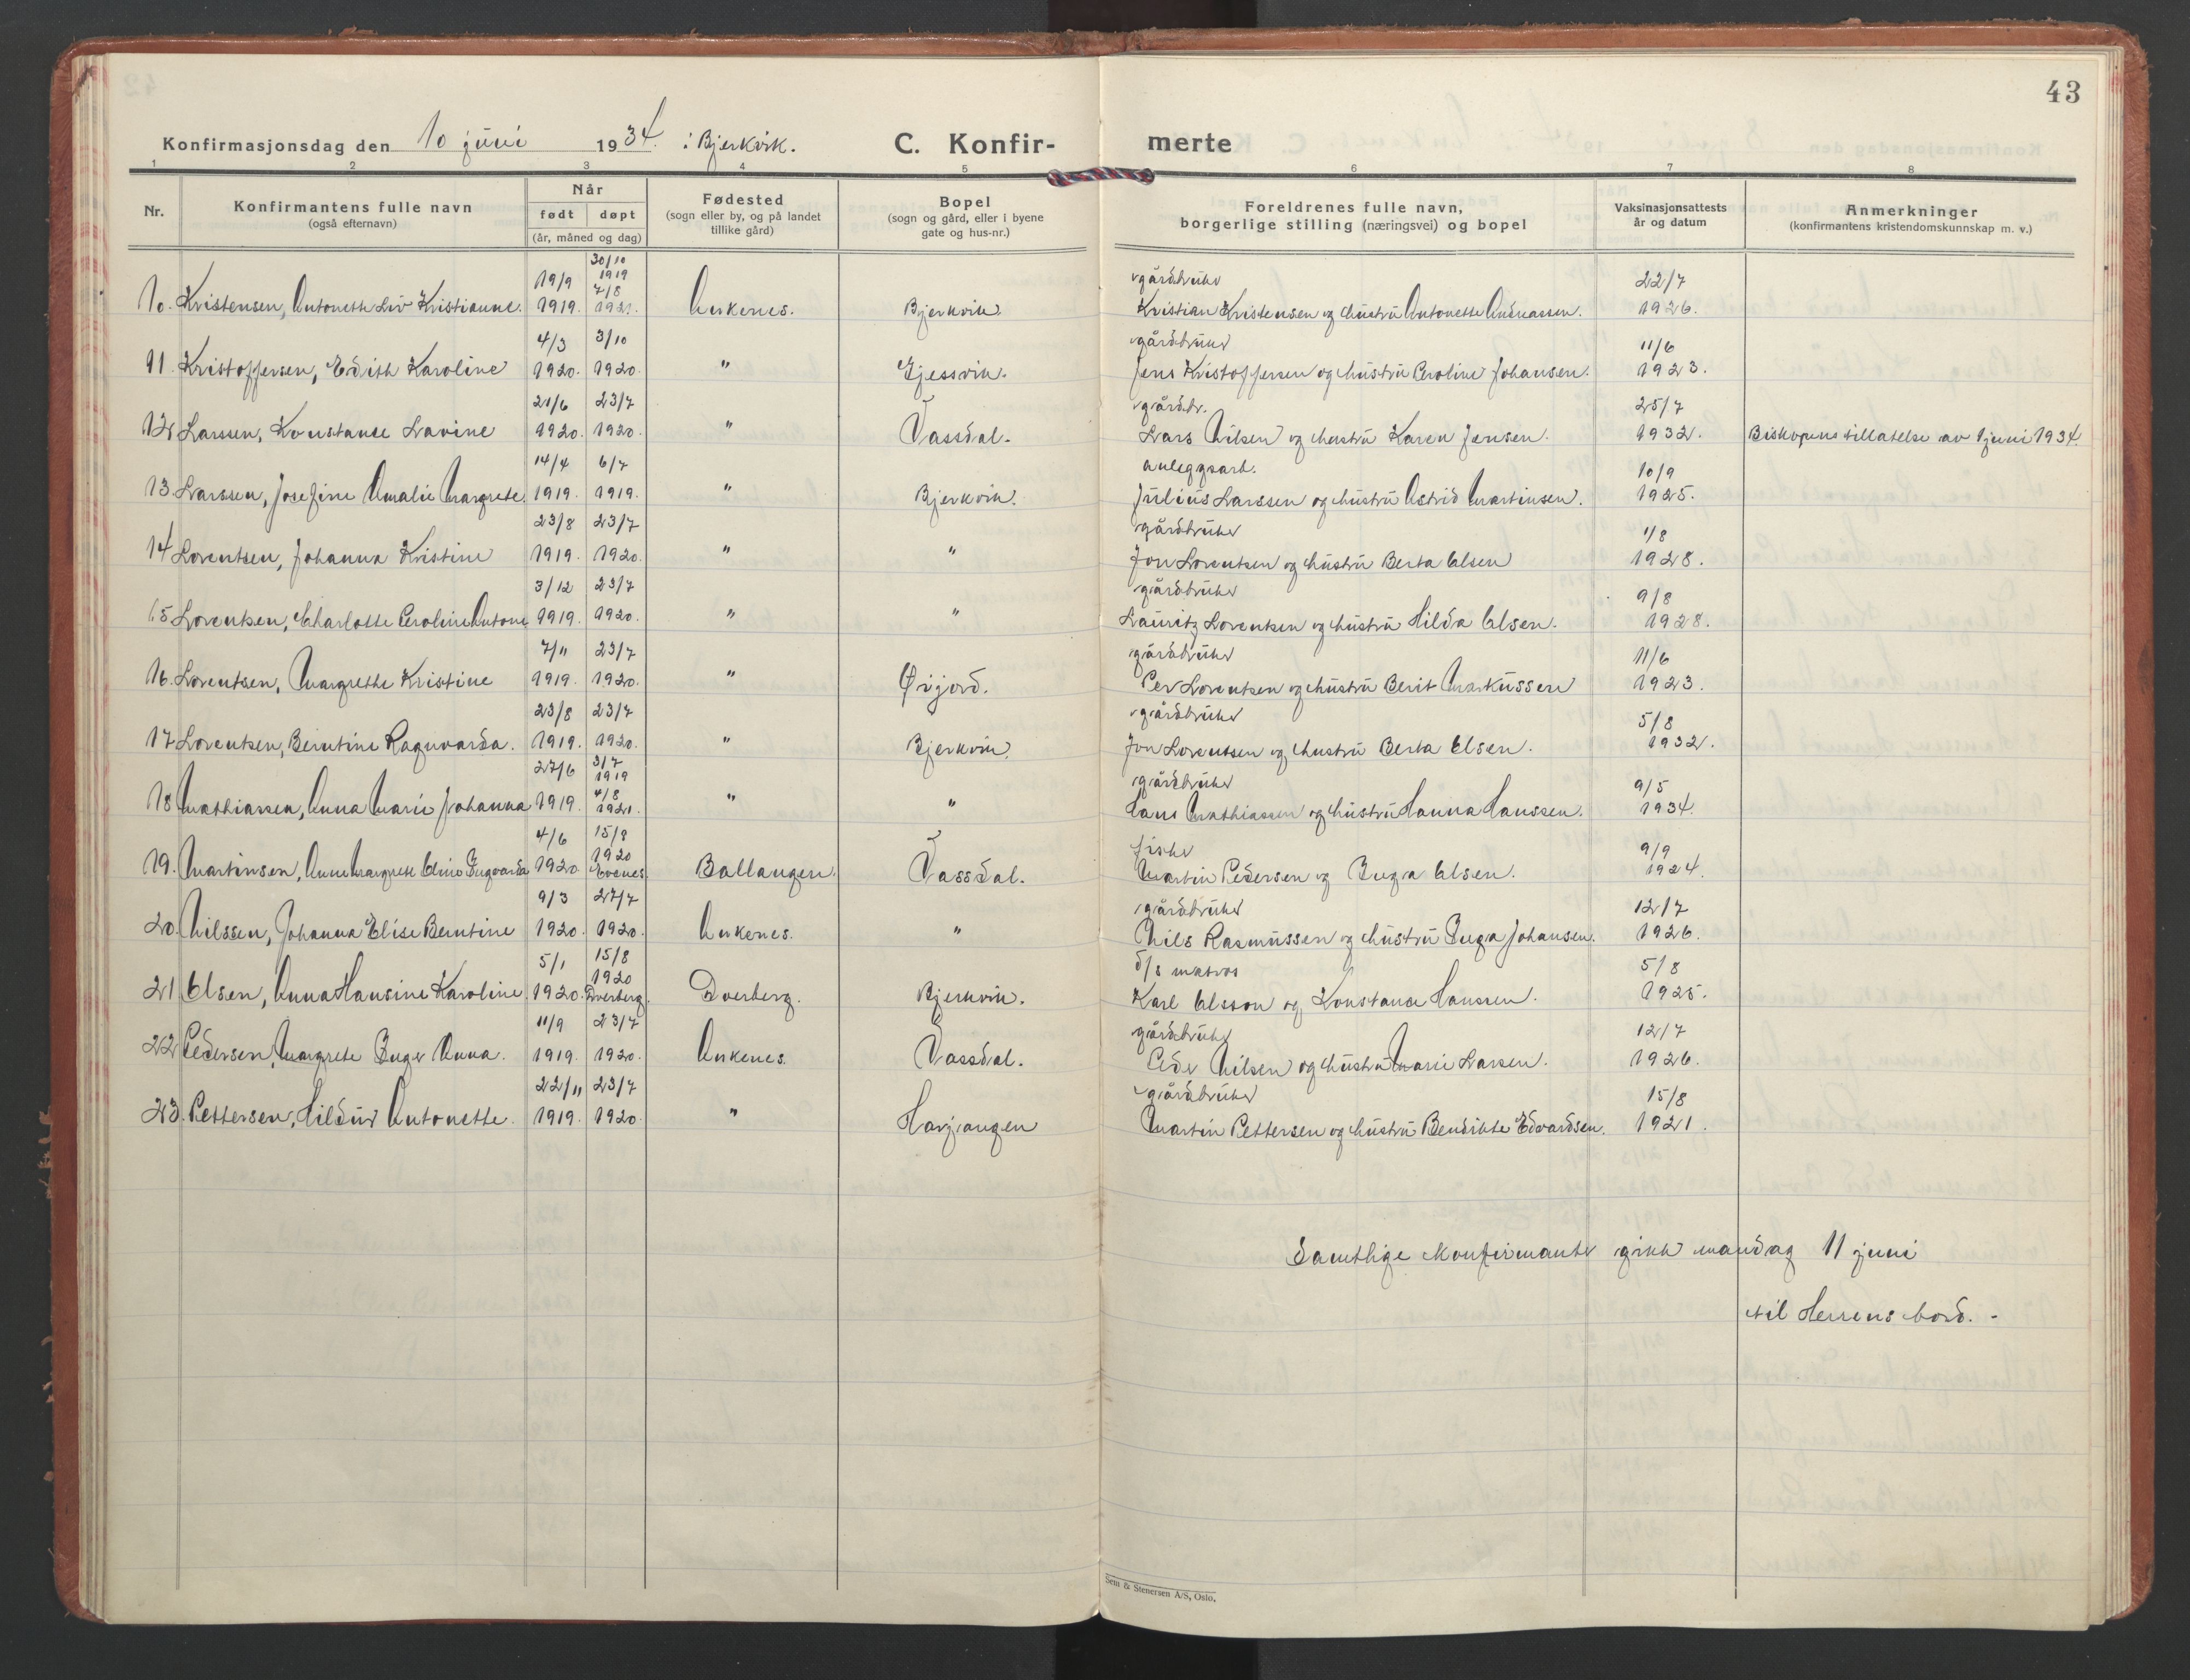 43
Konfirmasjonsdag den 10 juni 1934. i Bjerkvik.
C. Konfir-
merte
1 2 3 4 5 6 7 8
Nr.
Konfirmantens fulle navn
(også efternavn)
Når
født døpt
(år, måned og dag)
Fødested
(sogn eller by, og på landet
tillike gård)
Bopel
(sogn og gård, eller i byene
gate og hus-nr.)
Foreldrenes fulle navn,
borgerlige stilling (næringsvei) og bopel
Vaksinasjonsattests
år og datum
Anmerkninger
(konfirmantens kristendomskunnskap m. v.)
19/9 30/10 1919 7/8 gårdbruker 22/7
10. Kristensen, Antonette Liv Kristianne. 1919. 1921. Ankenes. Bjerkvik. Kristian Kristensen og hustru Antonette Andreassen. 1926.
4/3 3/10 gårdbruker 11/6
11. Kristoffersen, Edith Karoline 1920. 1920. " Gjessvik. Jens Kristoffersen og hustru Peroline Johansen. 1923.
21/6 23/7 gårdbr. 25/7
12 Larssen, Konstanse Lavine 1920. 1920. " Vassdal. Lars Nilsen og hustru Karen Jensen. 1932. Biskopens tillatelse av 1 juni 1934.
14/4 6/7 anleggsarb. 10/9
13. Larssen, Josefine Amalie Margrete. 1919. 1919. " Bjerkvik. Julius Larssen og hustru Astrid Martinsen. 1925.
23/8 23/7 gårdbruker 1/8
14 Lorentsen, Johanna Kristine 1919. 1920. " " Jon Lorentsen og hustru Berta Olsen 1928.
3/12 23/7 gårdbruker 9/8
15 Lorentsen, Charlotte Peroline Antone 1919. 1920. " " Lauritz Lorentsen og hustru Hilda Olsen. 1928.
7/11 23/7 gårdbruker 11/6
16. Lorentsen, Margrethe Kristine 1919. 1920. " Øijord. Per Lorentsen og hustru Berit Markussen 1923.
23/8 23/7 gårdbruker 5/8
17 Lorentsen, Berntine Ragnvarda. 1919. 1920. " Bjerkvik. Jon Lorentsen og hustru Berta Olsen. 1932.
27/6 3/7 1919 gårdbruker 9/5
18 Mathiassen, Anna Marie Johanna 1919. 4/8 1921. " " Hans Mathiassen og hustru Hanna Hanssen. 1934.
4/6 15/8 1920 fisker 9/9
19. Martinsen, Anne Margrete Ingvarda 1920. Evenes Ballangen. Vassdal. Martin Pedersen og Inga Olsen. 1924.
9/3 27/7 gårdbruker 12/7
20. Nilssen, Johanna Elise Berntine 1920. 1920. Ankenes. " Nils Rasmussen og hustru Inga Johansen. 1926.
5/1 15/8 1920 d/s matros 5/8
21 Olsen, Anna Hansine Karoline 1920. Dverberg. Dverberg. Bjerkvik. Karl Olsson og Konstanse Hanssen. 1925.
11/9 23/7 gårdbruker 12/7
22 Pedersen, Margrete Inger Anna. 1919. 1920. Ankenes. Vassdal. Peder Nilsen og hustru Marie Larsen. 1926.
22/11 23/7 gårdbruker 15/8
23. Pettersen, Hildur Antonette. 1919. 1920. " Harjangen Martin Pettersen og hustru Bendikte Edvardsen. 1921.
Samtlige konfirmanter gikk mandag 11 juni
til Herrens bord. -
Sem & Stenersen A/S, Oslo.